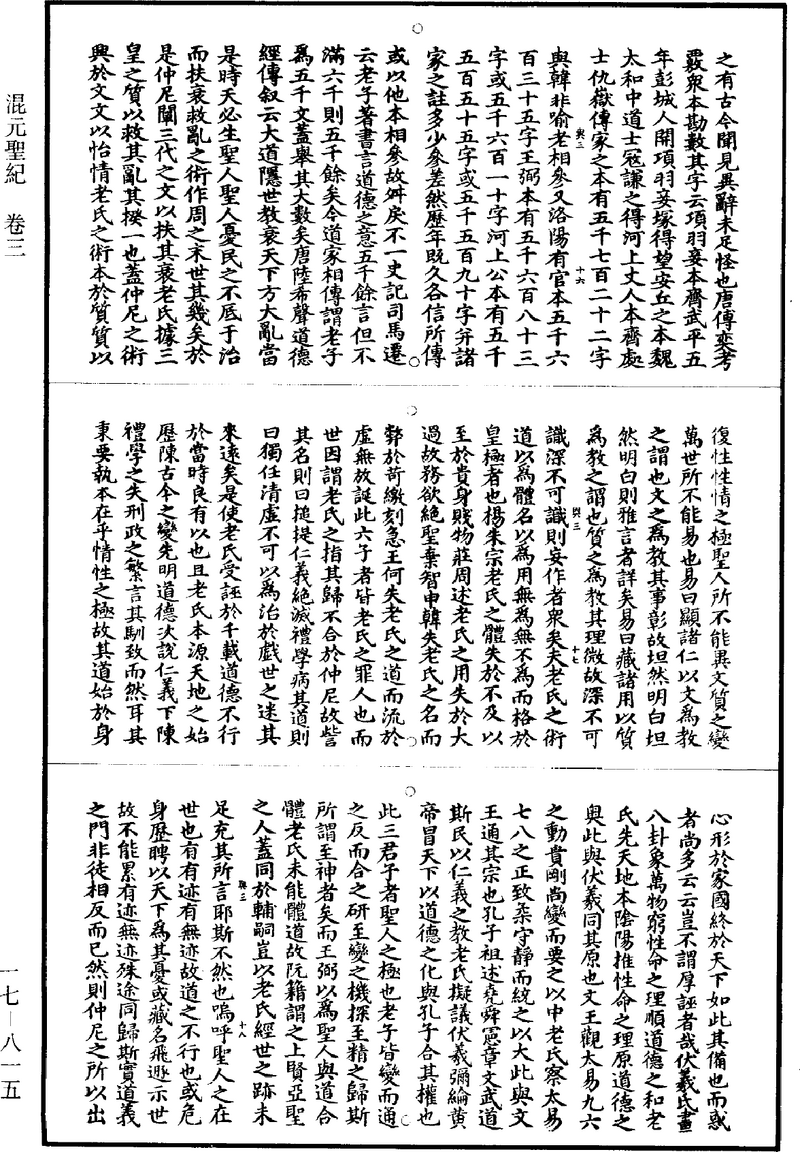 混元聖紀　卷三
之有古今聞見異辭未足怪也唐傅奕考
覈衆本勘數其字云項羽妾本齊武平五
年彭城人開項羽妾塚得望安丘之本魏
太和中道士寇謙之得河上丈人本齊處
士仇嶽傳家之本有五千七百二十二字
與韓非喻老相參又洛陽有官本五千六
與三　十六
百三十五字王弼本有五千六百八十三
字或五千六百一十字河上公本有五千
五百五十五字或五千五百九十字并諸
家之註多少參差然歷年既久各信所傳
或以他本相參故舛戾不一史記司馬遷
云老子著書言道德之意五千餘言但不
滿六千則五千餘矣今道家相傳謂老子
爲五千文蓋舉其大數矣唐陸希聲道德
經傳叙云大道隱世教衰天下方大亂當
是時天必生聖人聖人憂民之不底于治
而扶衰救亂之術作周之末世其幾矣於
是仲尼闡三代之文以扶其衰老氏據三
皇之質以救其亂其揆一也蓋仲尼之術
興於文文以怡情老氏之術本於質質以
復性性情之極聖人所不能異文質之變
萬世所不能易也易曰顯諸仁以文爲教
之謂也文之爲教其事彰故坦然明白坦
然明白則雅言者詳矣易曰藏諸用以質
爲教之謂也質之爲教其理微故深不可
與三　十七
識深不可識則妄作者衆矣夫老氏之術
道以爲體名以爲用無爲無不爲而格於
皇極者也楊朱宗老氏之體失於不及以
至於貴身賤物莊周述老氏之用失於大
過故務欲絕聖棄智申韓失老氏之名而
弊於苛繳刻急王何失老氏之道而流於
虛無放誕此六子者皆老氏之罪人也而
世因謂老氏之指其歸不合於仲尼故訾
其名則曰搥提仁義絕滅禮學病其道則
曰獨任清虛不可以爲治於戲世之迷其
來遠矣是使老氏受誣於千載道德不行
於當時良有以也且老氏本源天地之始
歷陳古今之變先明道德次說仁義下陳
禮學之失刑政之繁言其馴致而然耳其
秉要執本在乎情性之極故其道始於身
心形於家國終於天下如此其備也而惑
者尚多云云豈不謂厚誣者哉伏羲氏畫
八卦象萬物窮性命之理順道德之和老
氏先天地本陰陽推性命之理原道德之
奧此與伏羲同其原也文王觀太易九六
之動貴剛尚變而要之以中老氏察太易
七八之正致柔守靜而統之以大此與文
王通其宗也孔子祖述堯舜憲章文武道
斯民以仁義之教老氏擬議伏羲彌綸黃
帝冒天下以道德之化與孔子合其權也
此三君子者聖人之極也老子皆變而通
之反而合之研至變之機探至精之歸斯
所謂至神者矣而王弼以爲聖人與道合
體老氏未能體道故阮籍謂之上賢亞聖
之人蓋同於輔嗣豈以老氏經世之跡未
足充其所言耶斯不然也嗚呼聖人之在
與三　十八
世也有有迹有無迹故道之不行也或危
身歷聘以天下爲其憂或藏名飛遯示世
故不能累有迹無迹殊途同歸斯實道義
之門非徒相反而已然則仲尼之所以出
一七—八一五